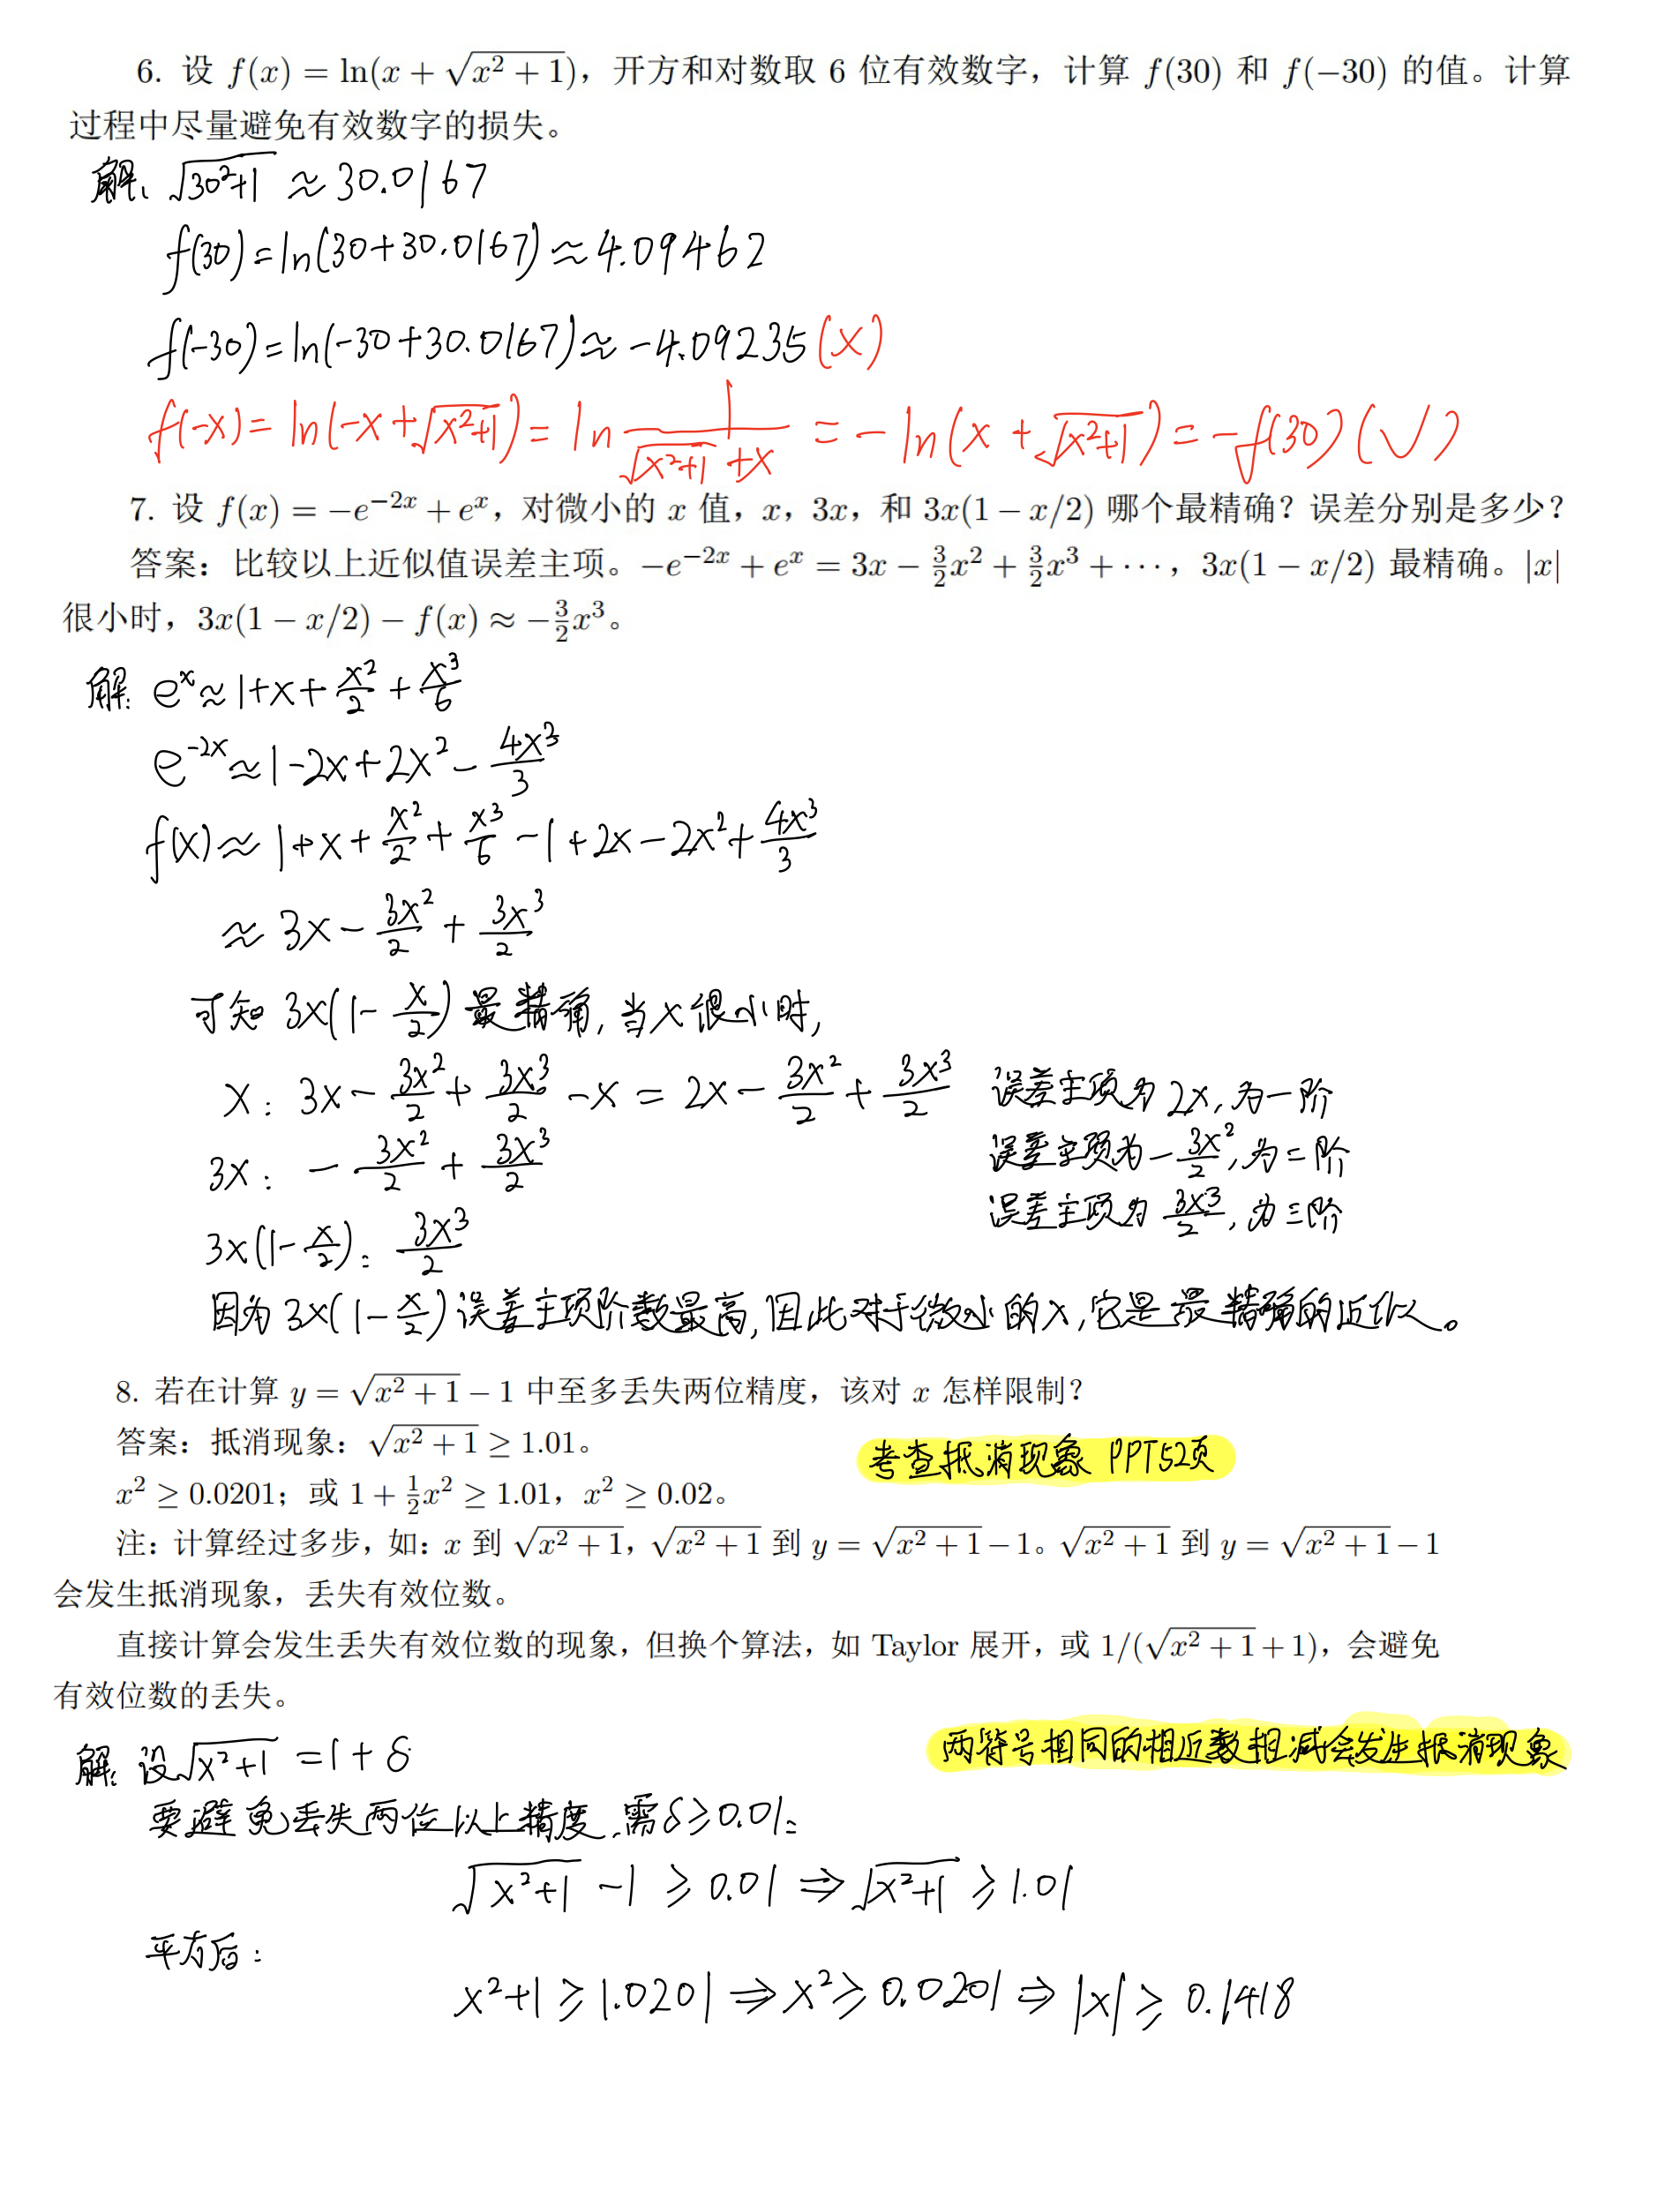 6. 设 f(x) = ln(x + √(x² + 1))，开方和对数取 6 位有效数字，计算 f(30) 和 f(−30) 的值。计算
过程中尽量避免有效数字的损失。
解: √(30²+1) ≈ 30.0167
f(30) = ln(30+30.0167) ≈ 4.09462
f(-30) = ln(-30+30.0167) ≈ -4.09235 (×)
f(-x) = ln(-x+√(x²+1)) = ln 1/(√(x²+1)+x) = -ln(x+√(x²+1)) = -f(30) (√)
7. 设 f(x) = −e⁻²ˣ + eˣ，对微小的 x 值，x，3x，和 3x(1 − x/2) 哪个最精确？误差分别是多少？
答案：比较以上近似值误差主项。−e⁻²ˣ + eˣ = 3x − 3/2x² + 3/2x³ + ⋯，3x(1 − x/2) 最精确。|x|
很小时，3x(1 − x/2) − f(x) ≈ −3/2x³。
解: eˣ ≈ 1+x+x²/2+x³/6
e⁻²ˣ ≈ 1-2x+2x²-4x³/3
f(x) ≈ 1+x+x²/2+x³/6-1+2x-2x²+4x³/3
≈ 3x-3x²/2+3x³/2
可知 3x(1-x/2) 最精确, 当x很小时,
x: 3x-3x²/2+3x³/2-x = 2x-3x²/2+3x³/2 误差主项为 2x, 为一阶
3x: -3x²/2+3x³/2 误差主项为 -3x²/2, 为二阶
3x(1-x/2): 3x³/2 误差主项为 3x³/2, 为三阶
因为 3x(1-x/2) 误差主项阶数最高, 因此对于微小的x, 它是最精确的近似。
8. 若在计算 y = √(x² + 1) − 1 中至多丢失两位精度，该对 x 怎样限制？
答案：抵消现象：√(x² + 1) ≥ 1.01。
考查抵消现象 PPT52页
x² ≥ 0.0201；或 1 + 1/2x² ≥ 1.01，x² ≥ 0.02。
注：计算经过多步，如：x 到 √(x² + 1)，√(x² + 1) 到 y = √(x² + 1) − 1。√(x² + 1) 到 y = √(x² + 1) − 1
会发生抵消现象，丢失有效位数。
直接计算会发生丢失有效位数的现象，但换个算法，如 Taylor 展开，或 1/(√(x² + 1) + 1)，会避免
有效位数的丢失。
两符号相同的相近数相减会发生抵消现象
解: 设√(x²+1) = 1+δ
要避免丢失两位以上精度, 需δ≥0.01:
√(x²+1) -1 ≥ 0.01 ⇒ √(x²+1) ≥ 1.01
平方后:
x²+1 ≥ 1.0201 ⇒ x² ≥ 0.0201 ⇒ |x| ≥ 0.1418